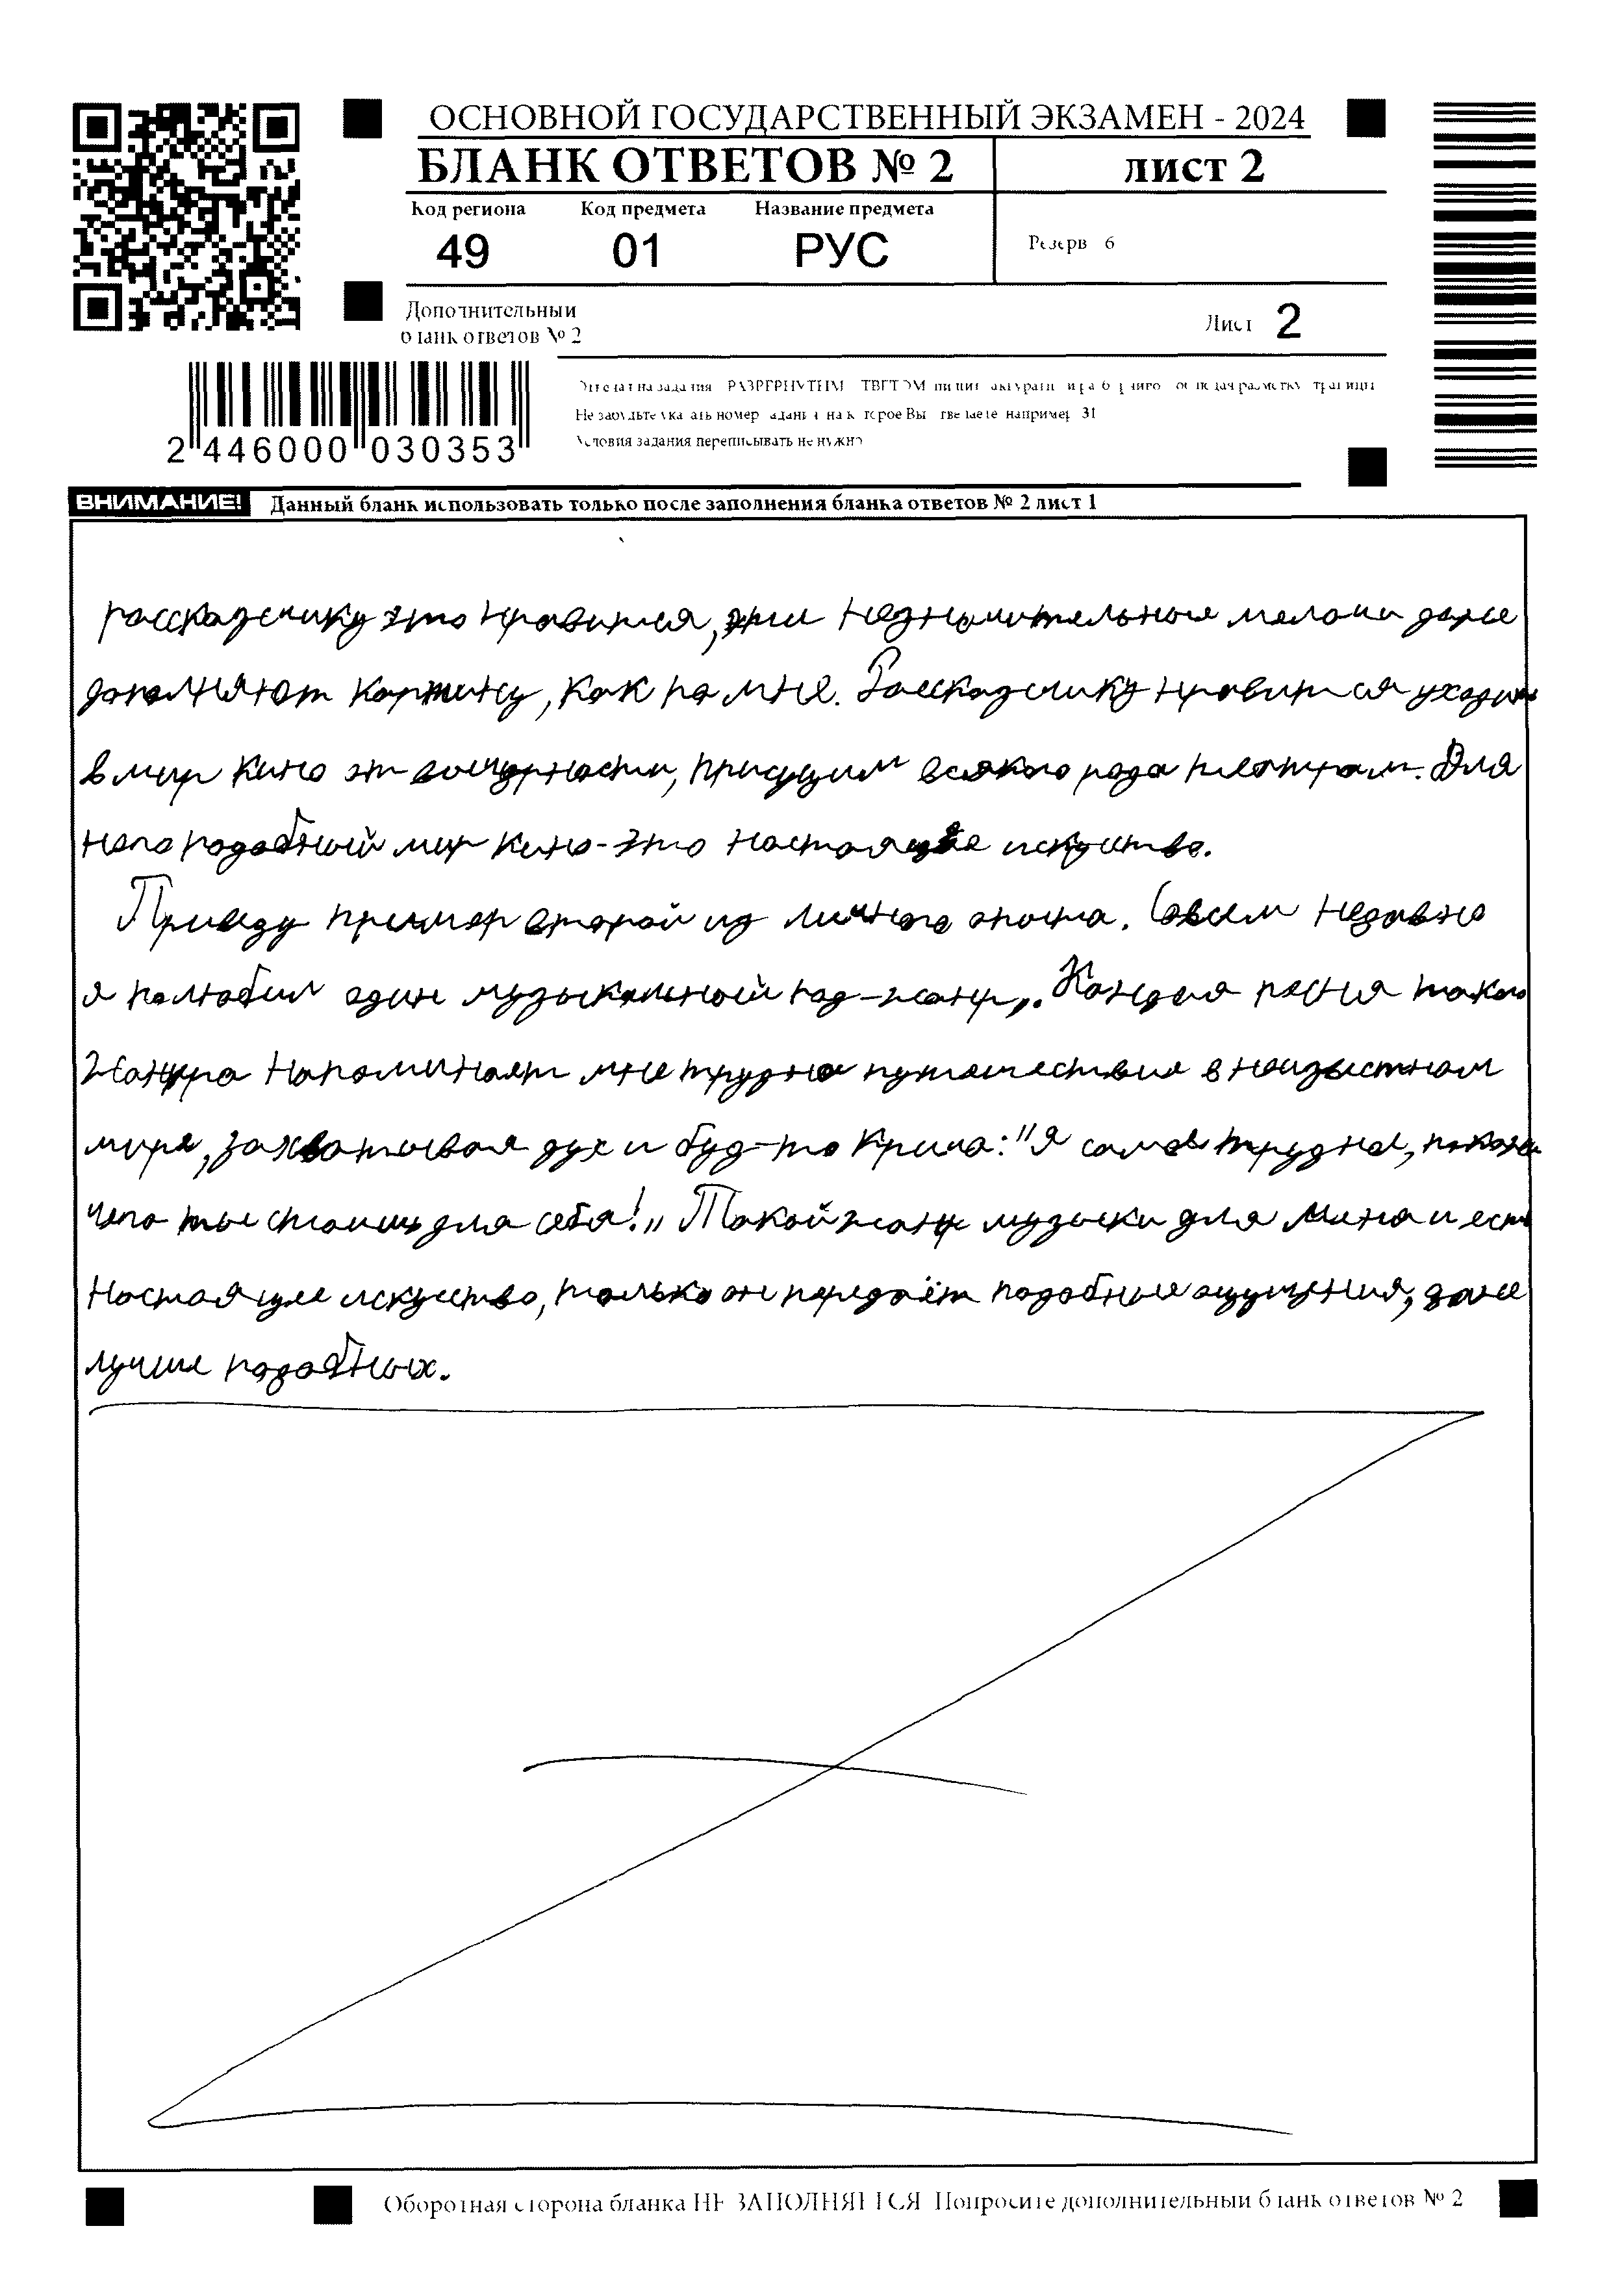 ОСНОВНОЙ ГОСУДАРСТВЕННЫЙ ЭКЗАМЕН - 2024
БЛАНК ОТВЕТОВ № 2 лист 2
Код региона Код предмета Название предмета
49 01 РУС Резерв 6
Дополнительный
бланк ответов № 2
Лист 2
Не забудьте указать номер задания на которое Вы отвечаете например 31
Условия задания переписывать не нужно
2 446000 030353
ВНИМАНИЕ! Данный бланк использовать только после заполнения бланка ответов № 2 лист 1
рассказчику это нравится, эти незначительные мелочи даже
дополняют картину, как по мне. Рассказчику нравится уходить
в мир кино от присущим всякого рода театрам. Для
него подобный мир кино-это настоящее искуство.
Приведу пример второй из личного опыта. Совсем недавно
я полюбил один музыкальный под-жанр. Каждая песня такого
жанра напоминает мне трудное путешествие в неизвестном
мире, захватывая дух и буд-то крича: "Я самое трудное, покажи
чего ты стоишь для себя!„ Такой жанр музыки для меня и есть
настоящее искуство, только он передаёт подобные ощущения, даже
лучше подобных.
Оборотная сторона бланка НЕ ЗАПОЛНЯЕТСЯ Попросите дополнительный бланк ответов № 2